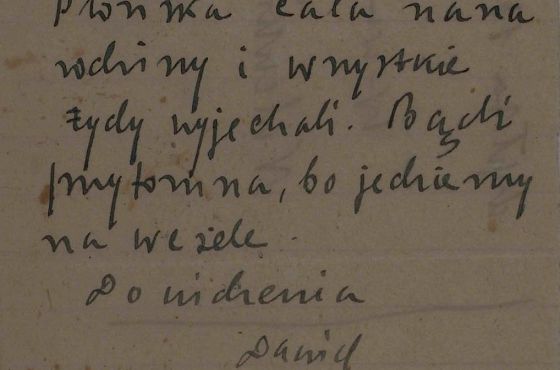 Płońska cała nasza
rodziny i wszystkie
żydy wyjechali. Bądź
przytomna, bo jedziemy
na wesele.
Do widzenia
Dawid